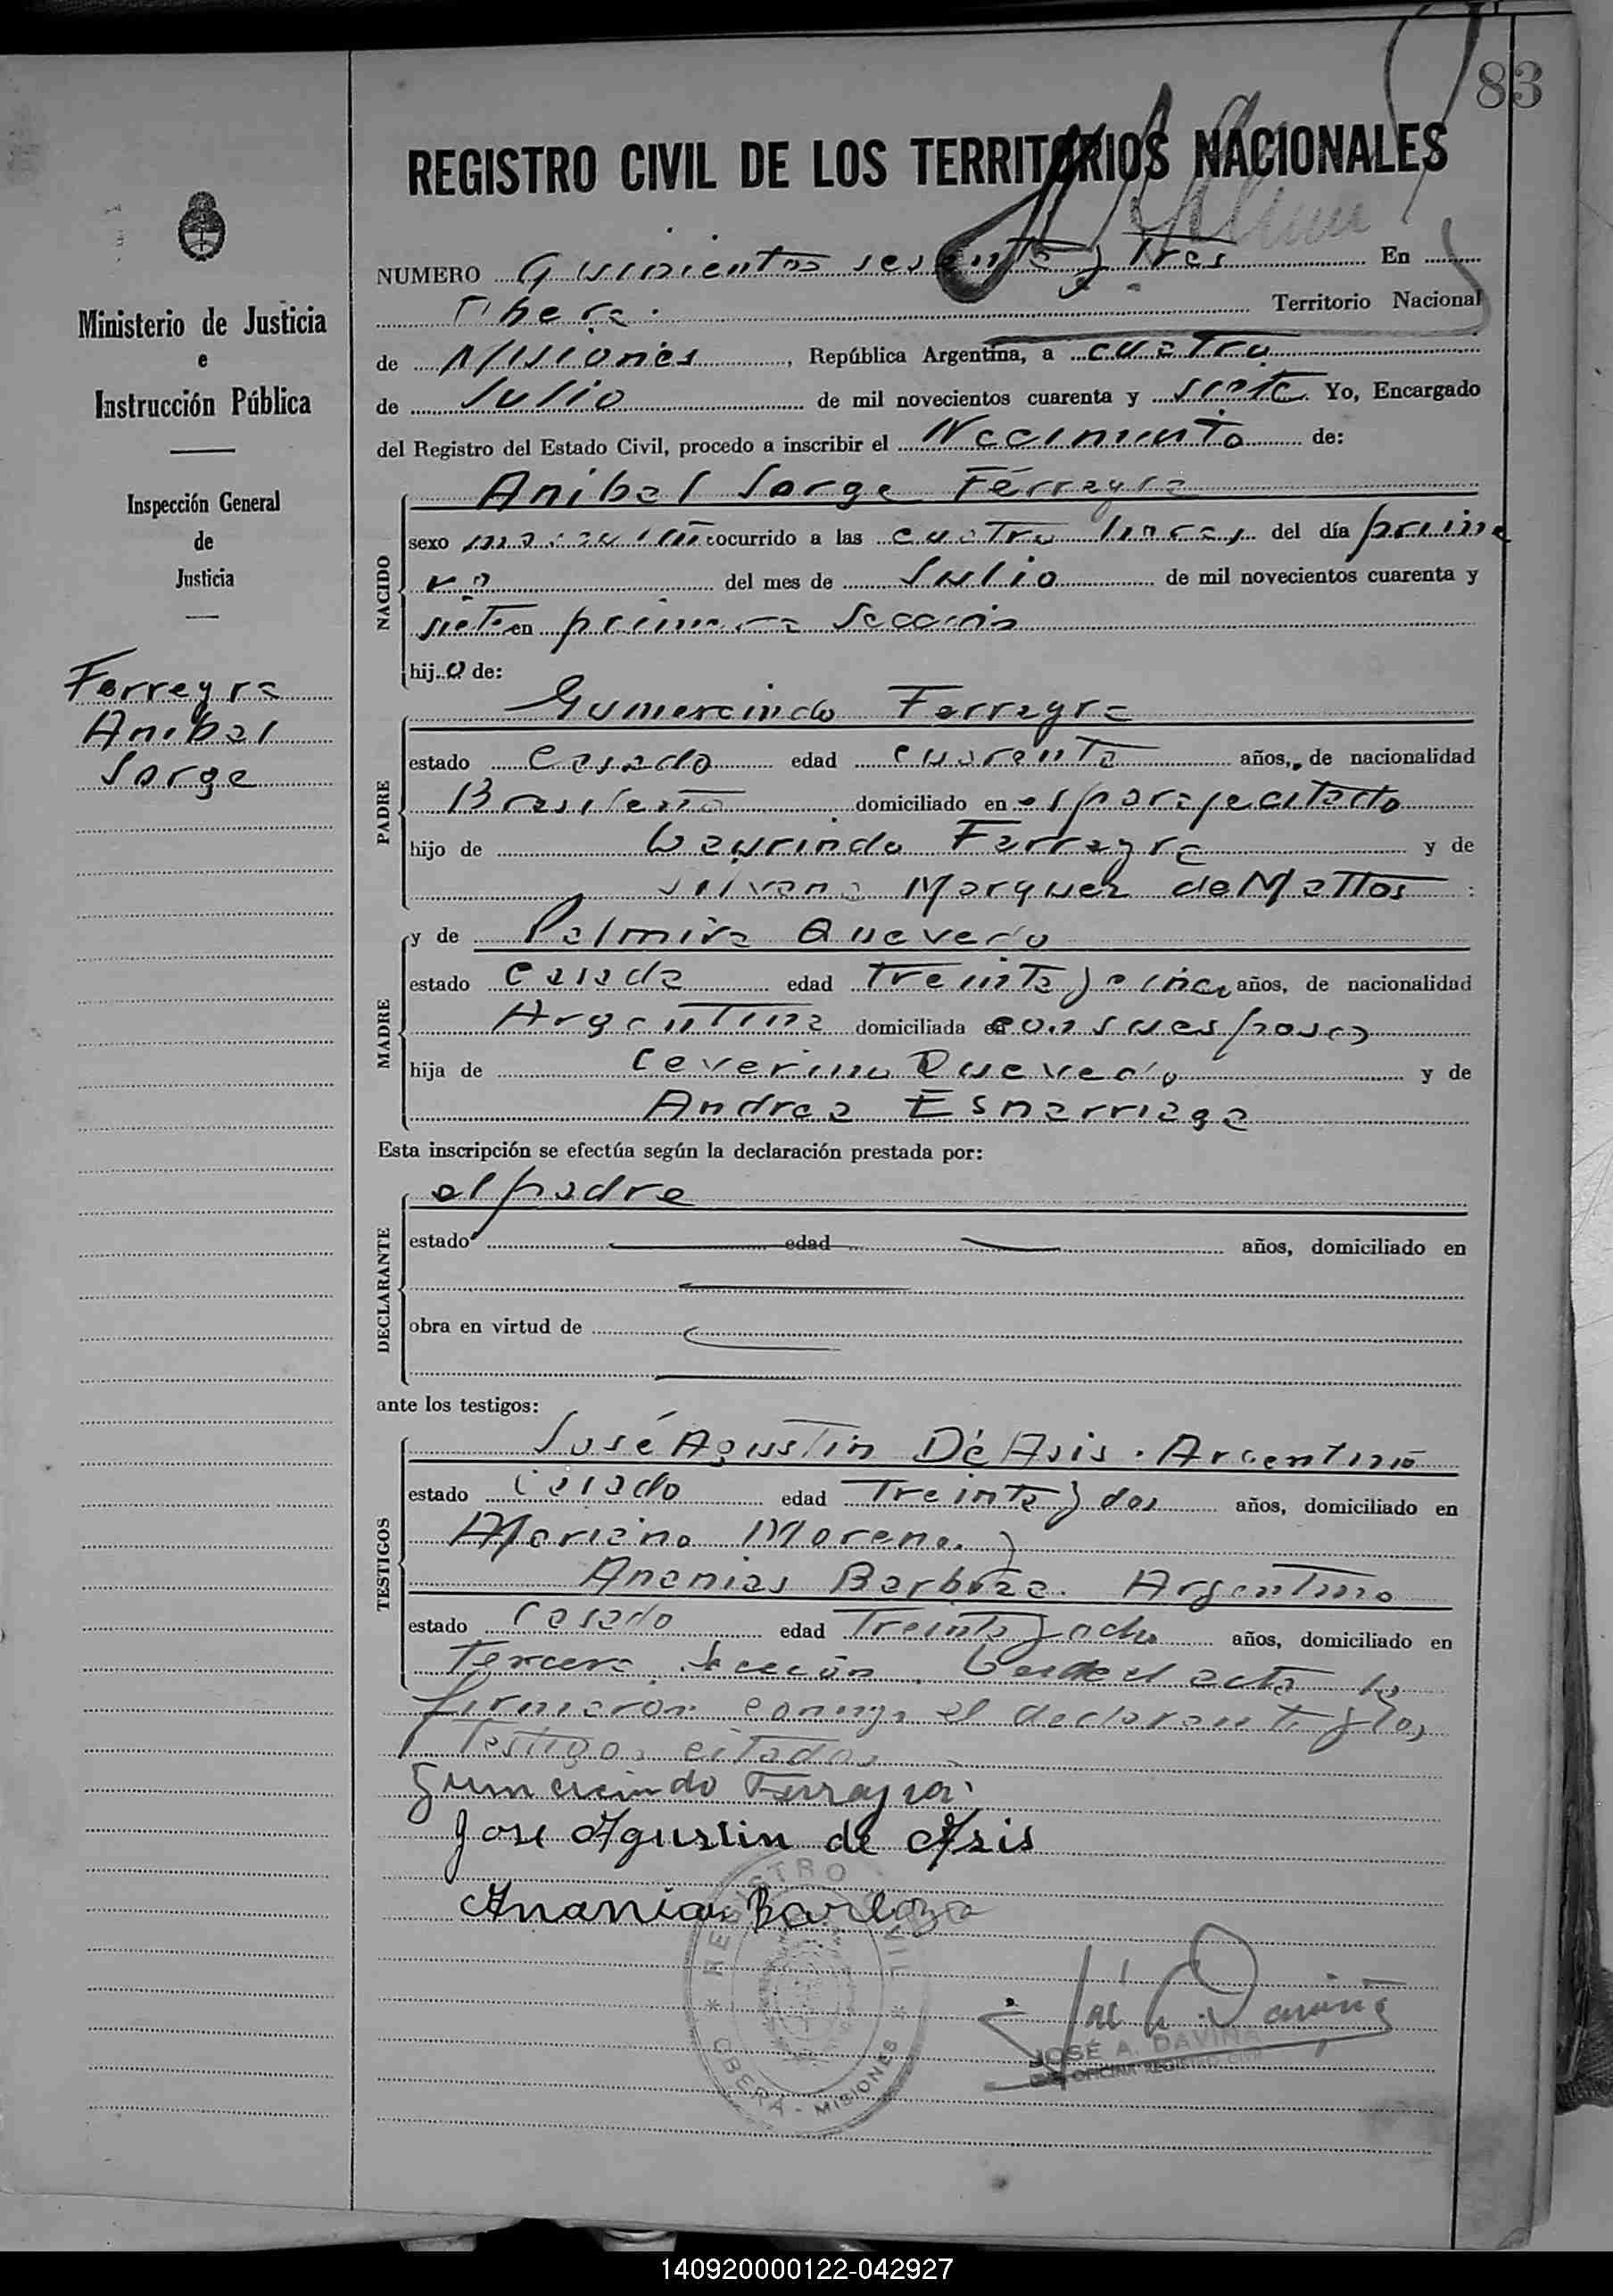 83
REGISTRO CIVIL DE LOS TERRITORIOS NACIONALES
Ministerio de Justicia
e
Instrucción Pública
Inspección General
de
Justicia
Ferreyra
Anibal
Jorge
NUMERO Quinientos sesenta y Tres En
Obera. Territorio Nacional
de Misiones, República Argentina, a cuatro
de Julio de mil novecientos cuarenta y siete Yo, Encargado
del Registro del Estado Civil, procedo a inscribir el Nacimiento de:
Anibal Jorge Ferreyra
NACIDO
sexo masculino ocurrido a las cuatro horas del día prime
ro del mes de Julio de mil novecientos cuarenta y
siete en primera Sección
hijo de:
Gumercindo Ferreyra
PADRE
estado Casado edad cuarenta años, de nacionalidad
Brasileña domiciliado en
hijo de Laurindo Ferreyra y de
Silvana Marquez de Mattos
y de Palmira Quevedo
MADRE
estado Casada edad Treinta y cinco años, de nacionalidad
Argentina domiciliada en con su esposo
hija de Ceverino Quevedo y de
Andrea Esnarriaga
Esta inscripción se efectúa según la declaración prestada por:
el padre
DECLARANTE
estado edad años, domiciliado en
obra en virtud de
ante los testigos:
José Agustin De Asis. Argentino
TESTIGOS
estado Casado edad Treinta y dos años, domiciliado en
Mariano Moreno y
Ananias Barboza. Argentino
estado Casado edad Treinta y ocho años, domiciliado en
Tercera Sección. Leida el acta la
firmaron conmigo el declarante y los
Testigos citados
Gumercindo Ferreyra
Jose Agustin de Asis
Ananias Barboza
REGISTRO CIVIL
OBERA - MISIONES
JOSÉ A. DAVIÑA
OFICINA REGISTRO CIVIL
140920000122-042927